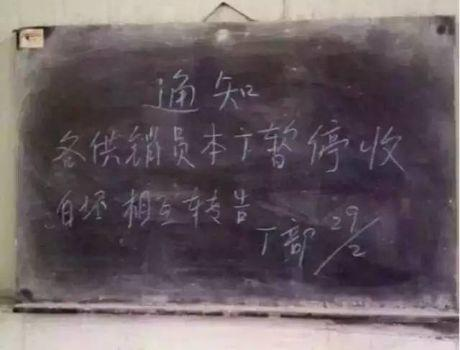 通知
各供销员本厂暂停收
白坯 相互转告
厂部 29/2